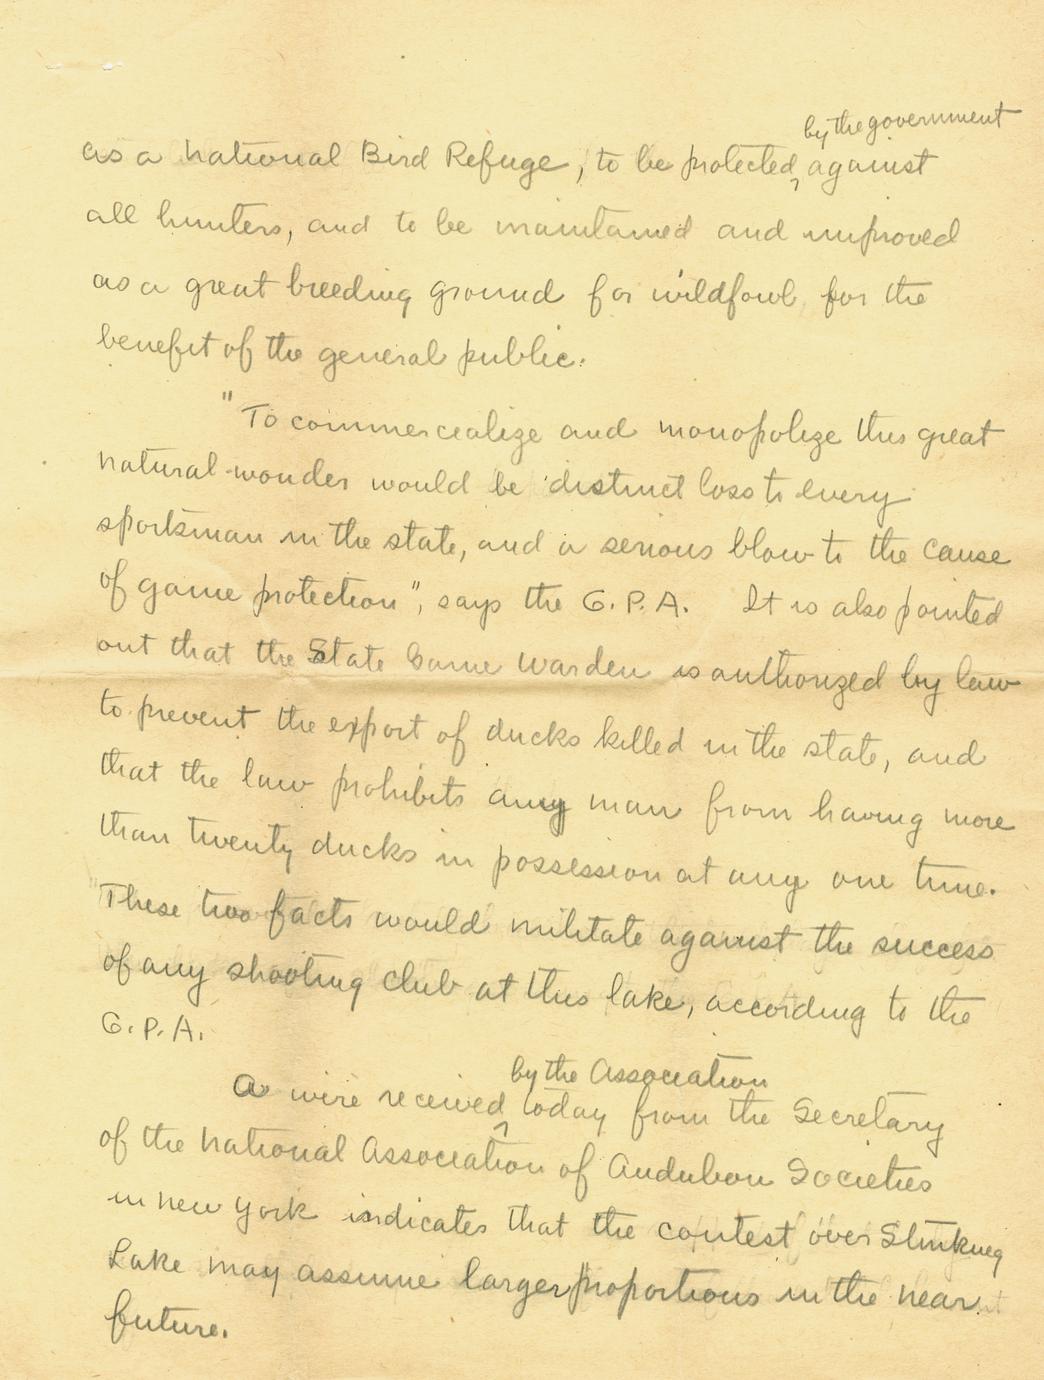 by the government
as a National Bird Refuge, to be protected ‸ against
all hunters, and to be maintained and improved
as a great breeding ground for wildfowl, for the
benefit of the general public.
"To commercialize and monopolize this great
natural wonder would be distinct loss to every
sportsman in the state, and a serious blow to the cause
of game protection", says the G.P.A. It is also pointed
out that the State Game Warden is authorized by law
to prevent the export of ducks killed in the state, and
that the law prohibits any man from having more
than twenty ducks in possession at any one time.
These two facts would militate against the success
of any shooting club at this lake, according to the
G.P.A.
by the Association
A wire received ‸ today from the Secretary
of the National Association of Audubon Societies
in New York indicates that the contest over Stinking
Lake may assume larger proportions in the near
future.